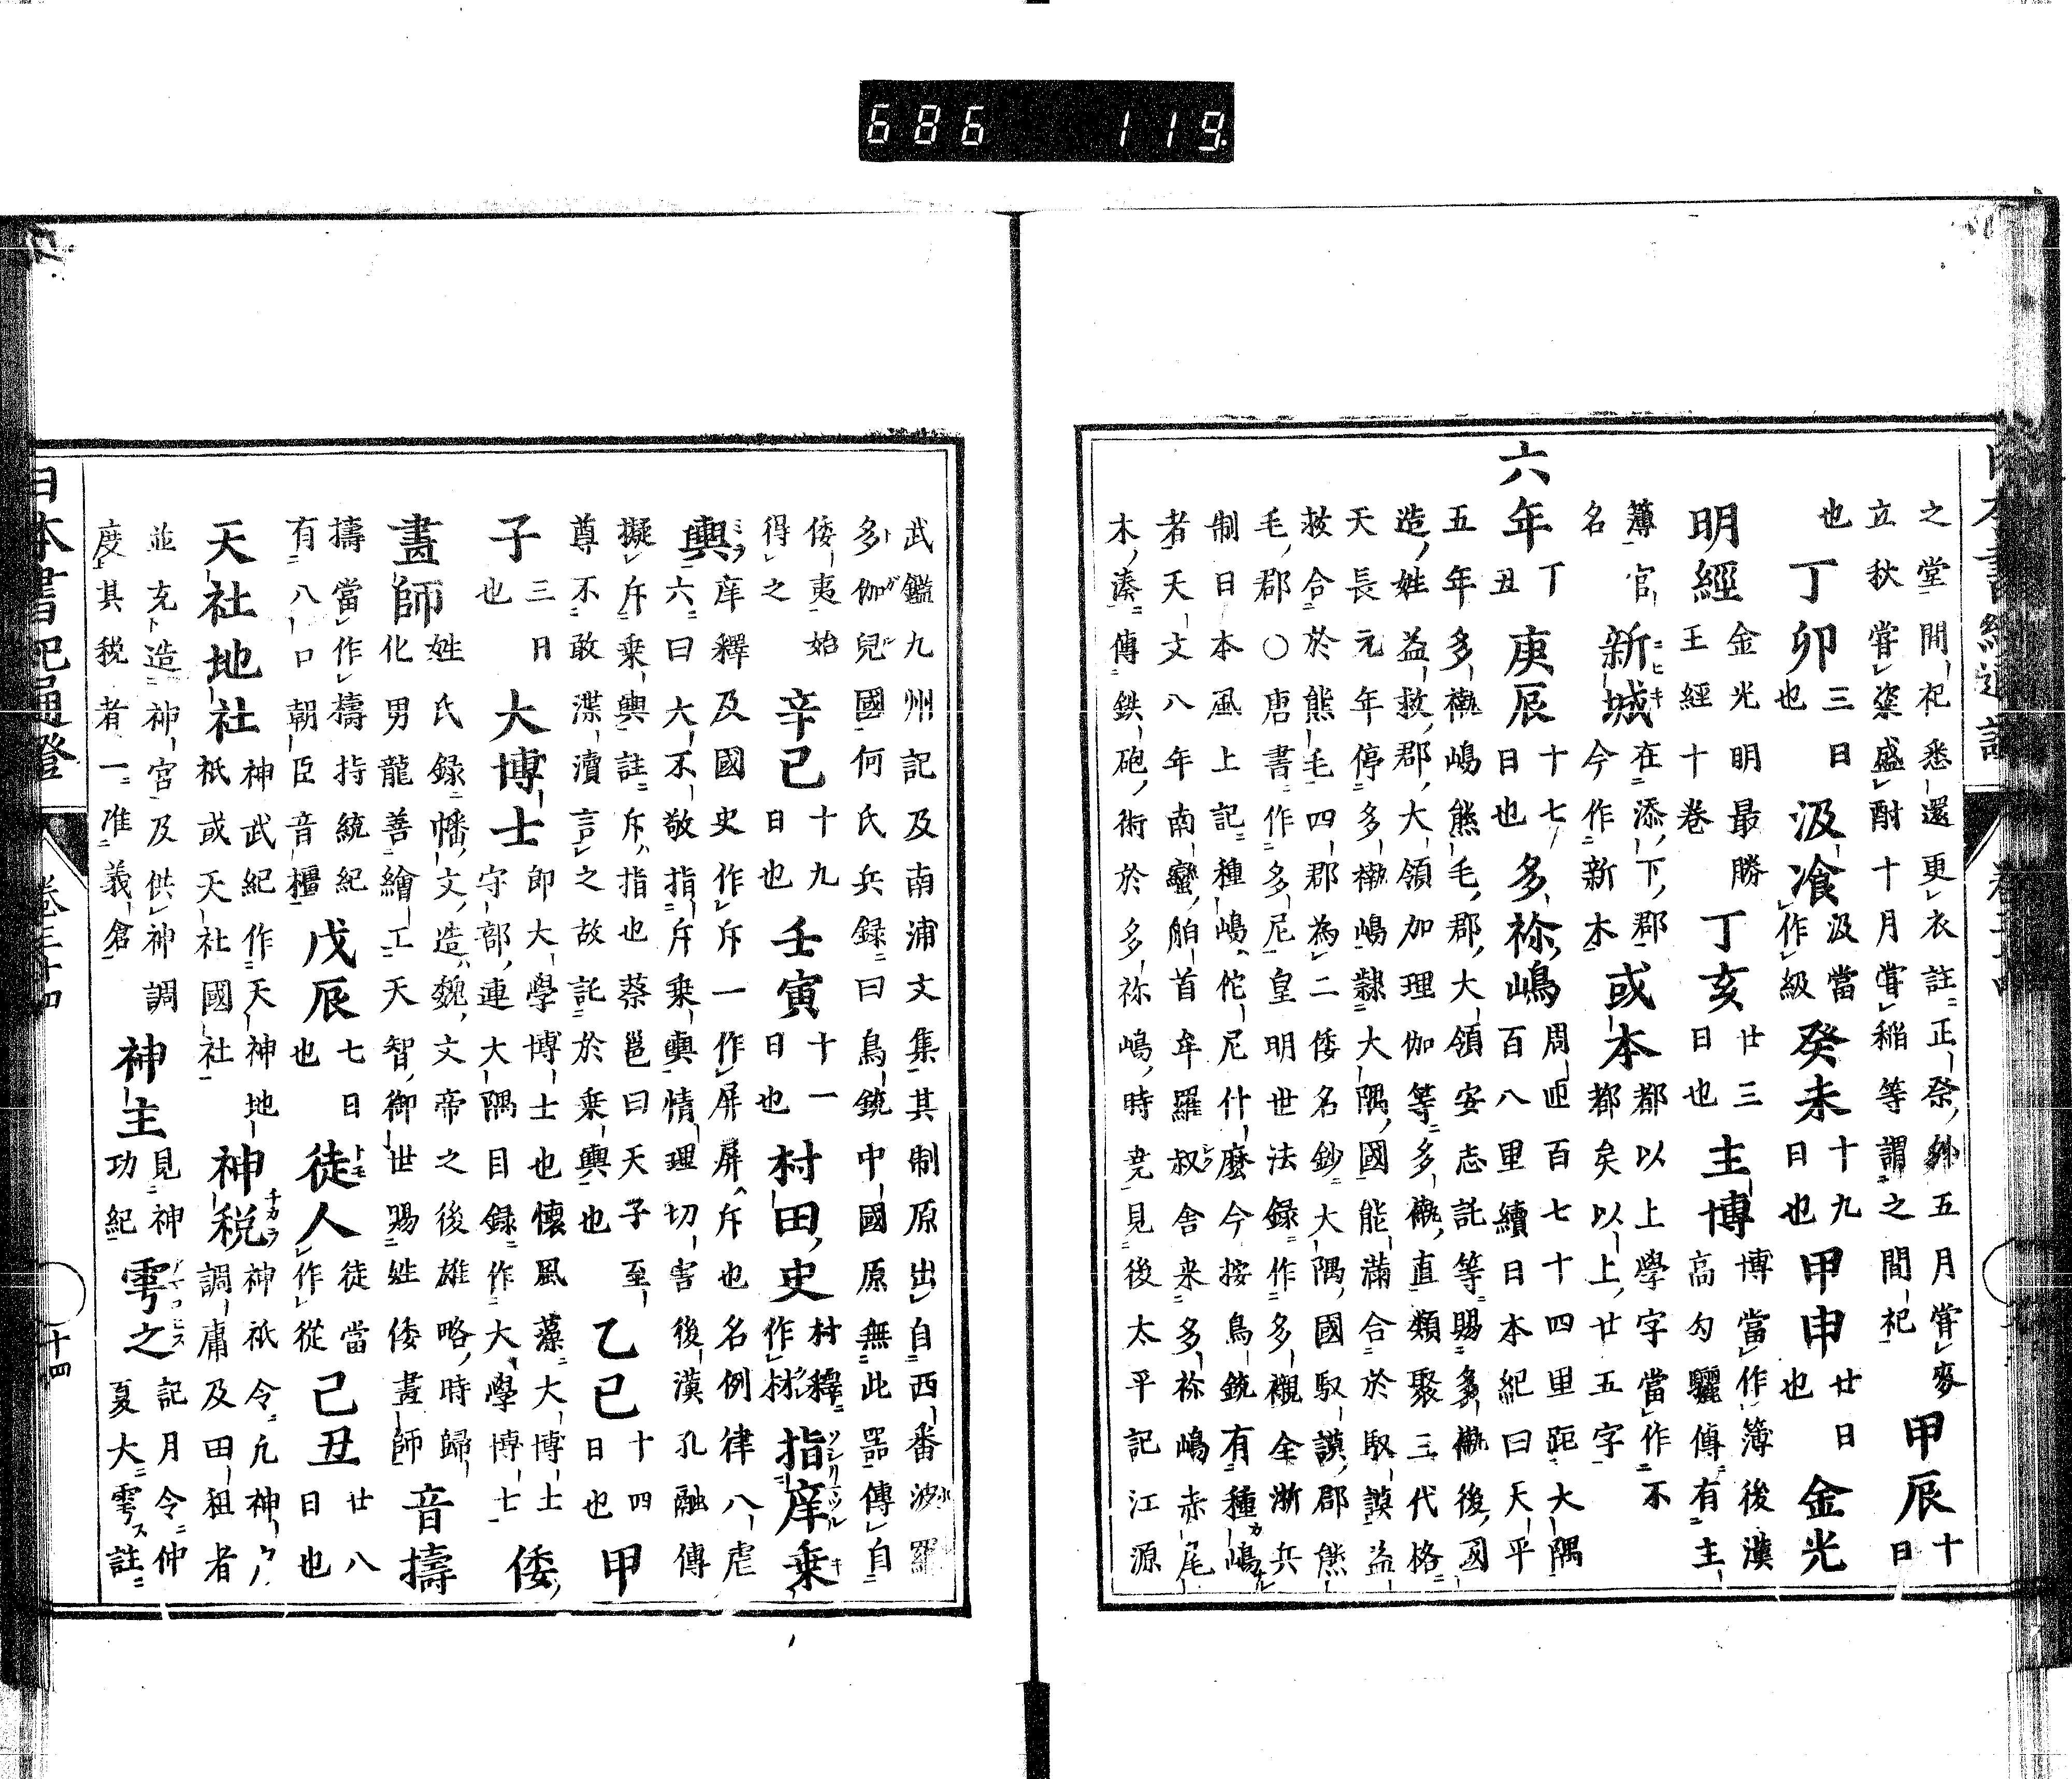 686 119
之堂間祀悉還更衣註正祭外五月甞麥
立秋甞粢盛酎十月甞稲等謂之間祀
甲辰
十
日
也
丁卯
三日
也
汲飡
汲當
作級
癸未
十九
日也
甲申
廿日
也
金光
明經
金光明最勝
王經十卷
丁亥
廿三
日也
主博
博當作簿後漢
高勾驪傳有主
簿官
名
新城
ニヒキ
在添下郡
今作新木
或本
都以上學字當作不
都矣以上廿五字
六年
丁
丑
庚辰
十七
日也
多祢嶋
周匝百七十四里距大隅
百八里續日本紀曰天平
五年多褹嶋熊毛郡大領安志託等賜多褹後國
造姓益救郡大領加理伽等多褹直類聚三代格
天長元年停多褹嶋隷大隅國能滿合於馭謨益
救合於熊毛四郡為二倭名鈔大隅國馭謨郡熊
毛郡○唐書作多尼皇明世法録作多襯全浙兵
制日本風土記種嶋佗尼什麼今按鳥銃有種嶋
者天文八年南蠻舶首牟羅叔舎来多祢嶋赤尾
木湊傳鉄砲術於多祢嶋時尭見後太平記江源
武鑑九州記及南浦文集其制原出自西番波羅
多伽兒國何氏兵録曰鳥銃中國原無此噐傳自
倭夷始
得之
辛已
十九
日也
壬寅
十一
日也
村田史
村釋
作材
指㡿乗
輿
㡿釋及國史作斥一作屏屏斥也名例律八虐
六曰大不敬指斥乗輿情理切害後漢孔融傳
擬斥乗輿註斥指也蔡邕曰天子至
尊不敢渫瀆言之故託於乗輿也
乙已
十四
日也
甲
子
三日
也
大博士
即大學博士也懐風藻大博士
守部連大隅目録作大學博士
倭
畫師
姓氏録幡文造魏文帝之後雄略時歸
化男龍善繪工天智御世賜姓倭畫師
音擣
擣當作檮持統紀
有八口朝臣音橿
戊辰
七日
也
徒人
徒當
作從
己丑
廿八
日也
天社地社
神武紀作天神地
祇或天社國社
神税
神祇令凢神戸
調庸及田租者
並充造神宮及供神調
度其税者一准義倉
神主
見神
功紀
雩之
記月令仲
夏大雩註
日本書紀通證
卷三十四
十四